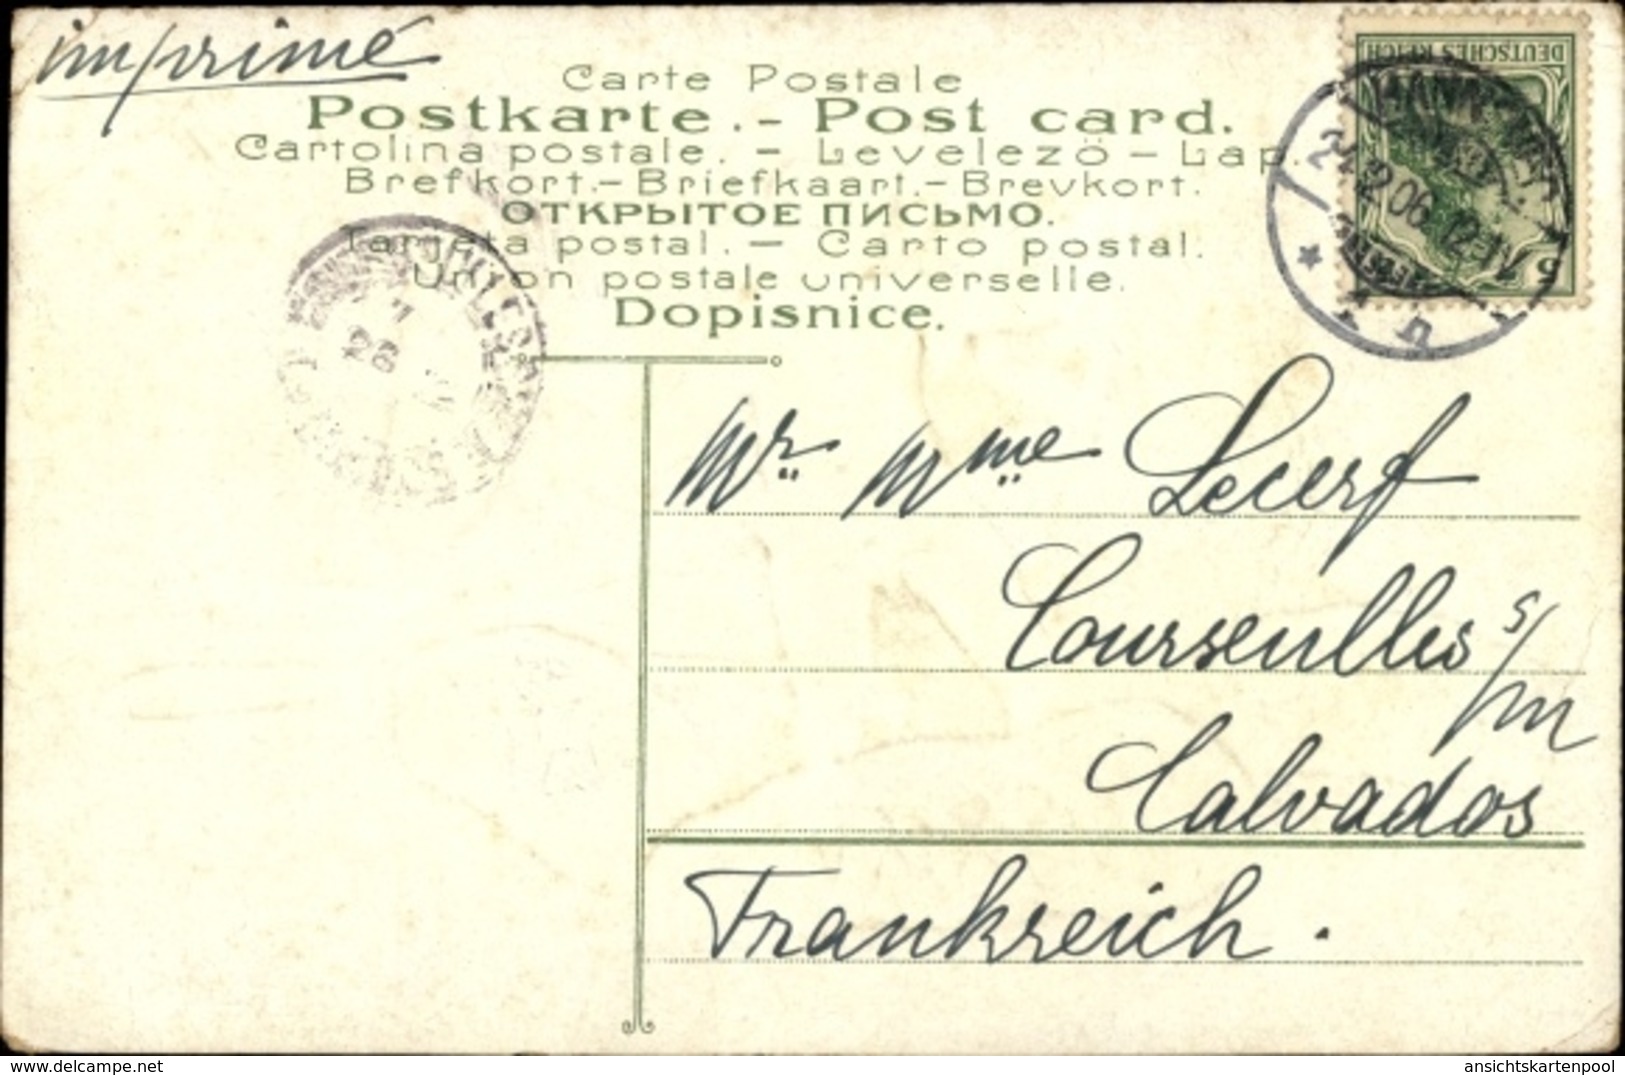 imprimé
Carte Postale
Postkarte. - Post card.
Cartolina postale. - Levelezö - Lap.
Brefkort. - Briefkaart. - Brevkort.
ОТКРЫТОЕ ПИСЬМО.
Tarjeta postal. - Carto postal.
Union postale universelle.
Dopisnice.
DEUTSCHES REICH
5
Mr Mme Lecerf
Courseulles s/m
Calvados
Frankreich.
ansichtskartenpool